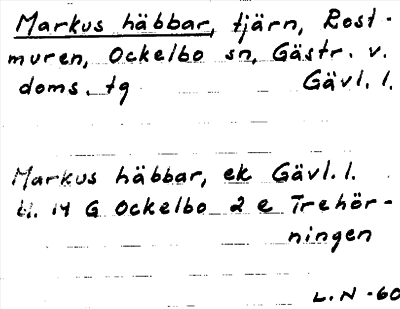 Markus häbbar, tjärn, Rost-
muren, Ockelbo sn, Gästr. v.
doms. tg Gävl. l.
Markus häbbar, ek Gävl. l.
bl. 14 G Ockelbo 2 e Trehör-
ningen
L. N -60